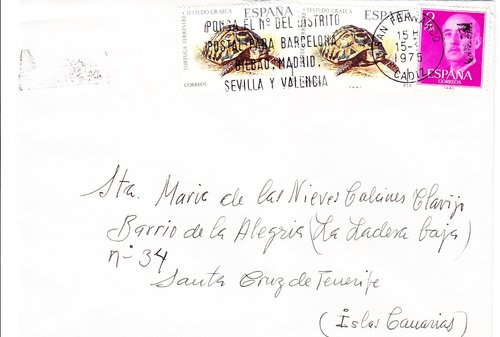 TESTUDO GRAECA
ESPAÑA
TESTUDO GRAECA
ESPAÑA
TORTUGA TERRESTRE
CORREOS
PTA
2
ESPAÑA
CORREOS
PONGA EL Nº DEL DISTRITO
POSTAL PARA BARCELONA
BILBAO, MADRID,
SEVILLA Y VALENCIA
SAN FERNANDO
15
15-
1975
CADIZ
Sta. Maria de las Nieves Calaines Clavijo
Barrio de la Alegria (La Ladera baja)
nº 34
Santa Cruz de Tenerife
(Islas Canarias)